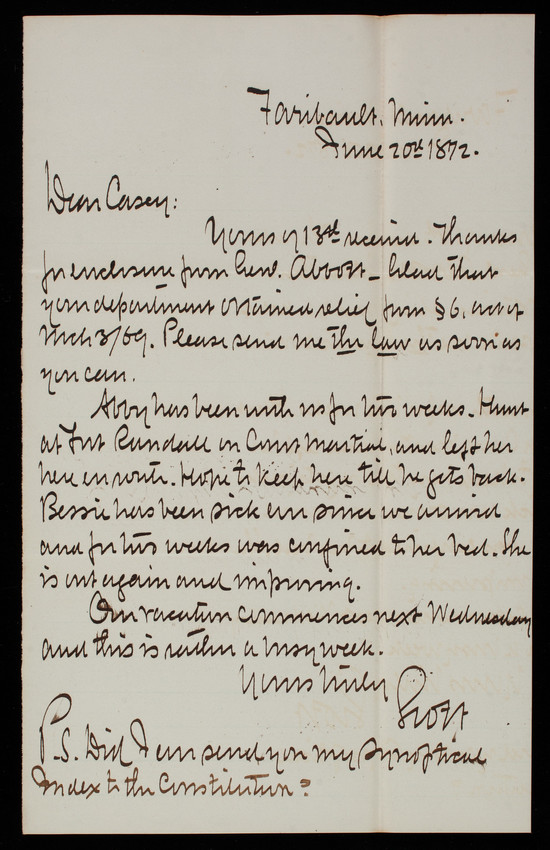 Faribault, Minn.
June 20th 1872.
Dear Casey:
Yours of 13th received. Thanks
for enclosure from Genl. Abbott - Glad that
your department obtained relief from § 6, act of
Mch 3/69. Please send me the law as soon as
you can.
Abby has been with us for two weeks. Hunt
at Fort Randall on Court Martial, and left her
here en route. Hope to keep here till he gets back.
Bessie has been sick ever since we arrived
and for two weeks was confined to her bed. She
is out again and improving.
Our vacation commences next Wednesday
and this is rather a busy week.
Yours truly
Scott
P.S. Did I ever send you my Synoptical
Index to the Constitution?